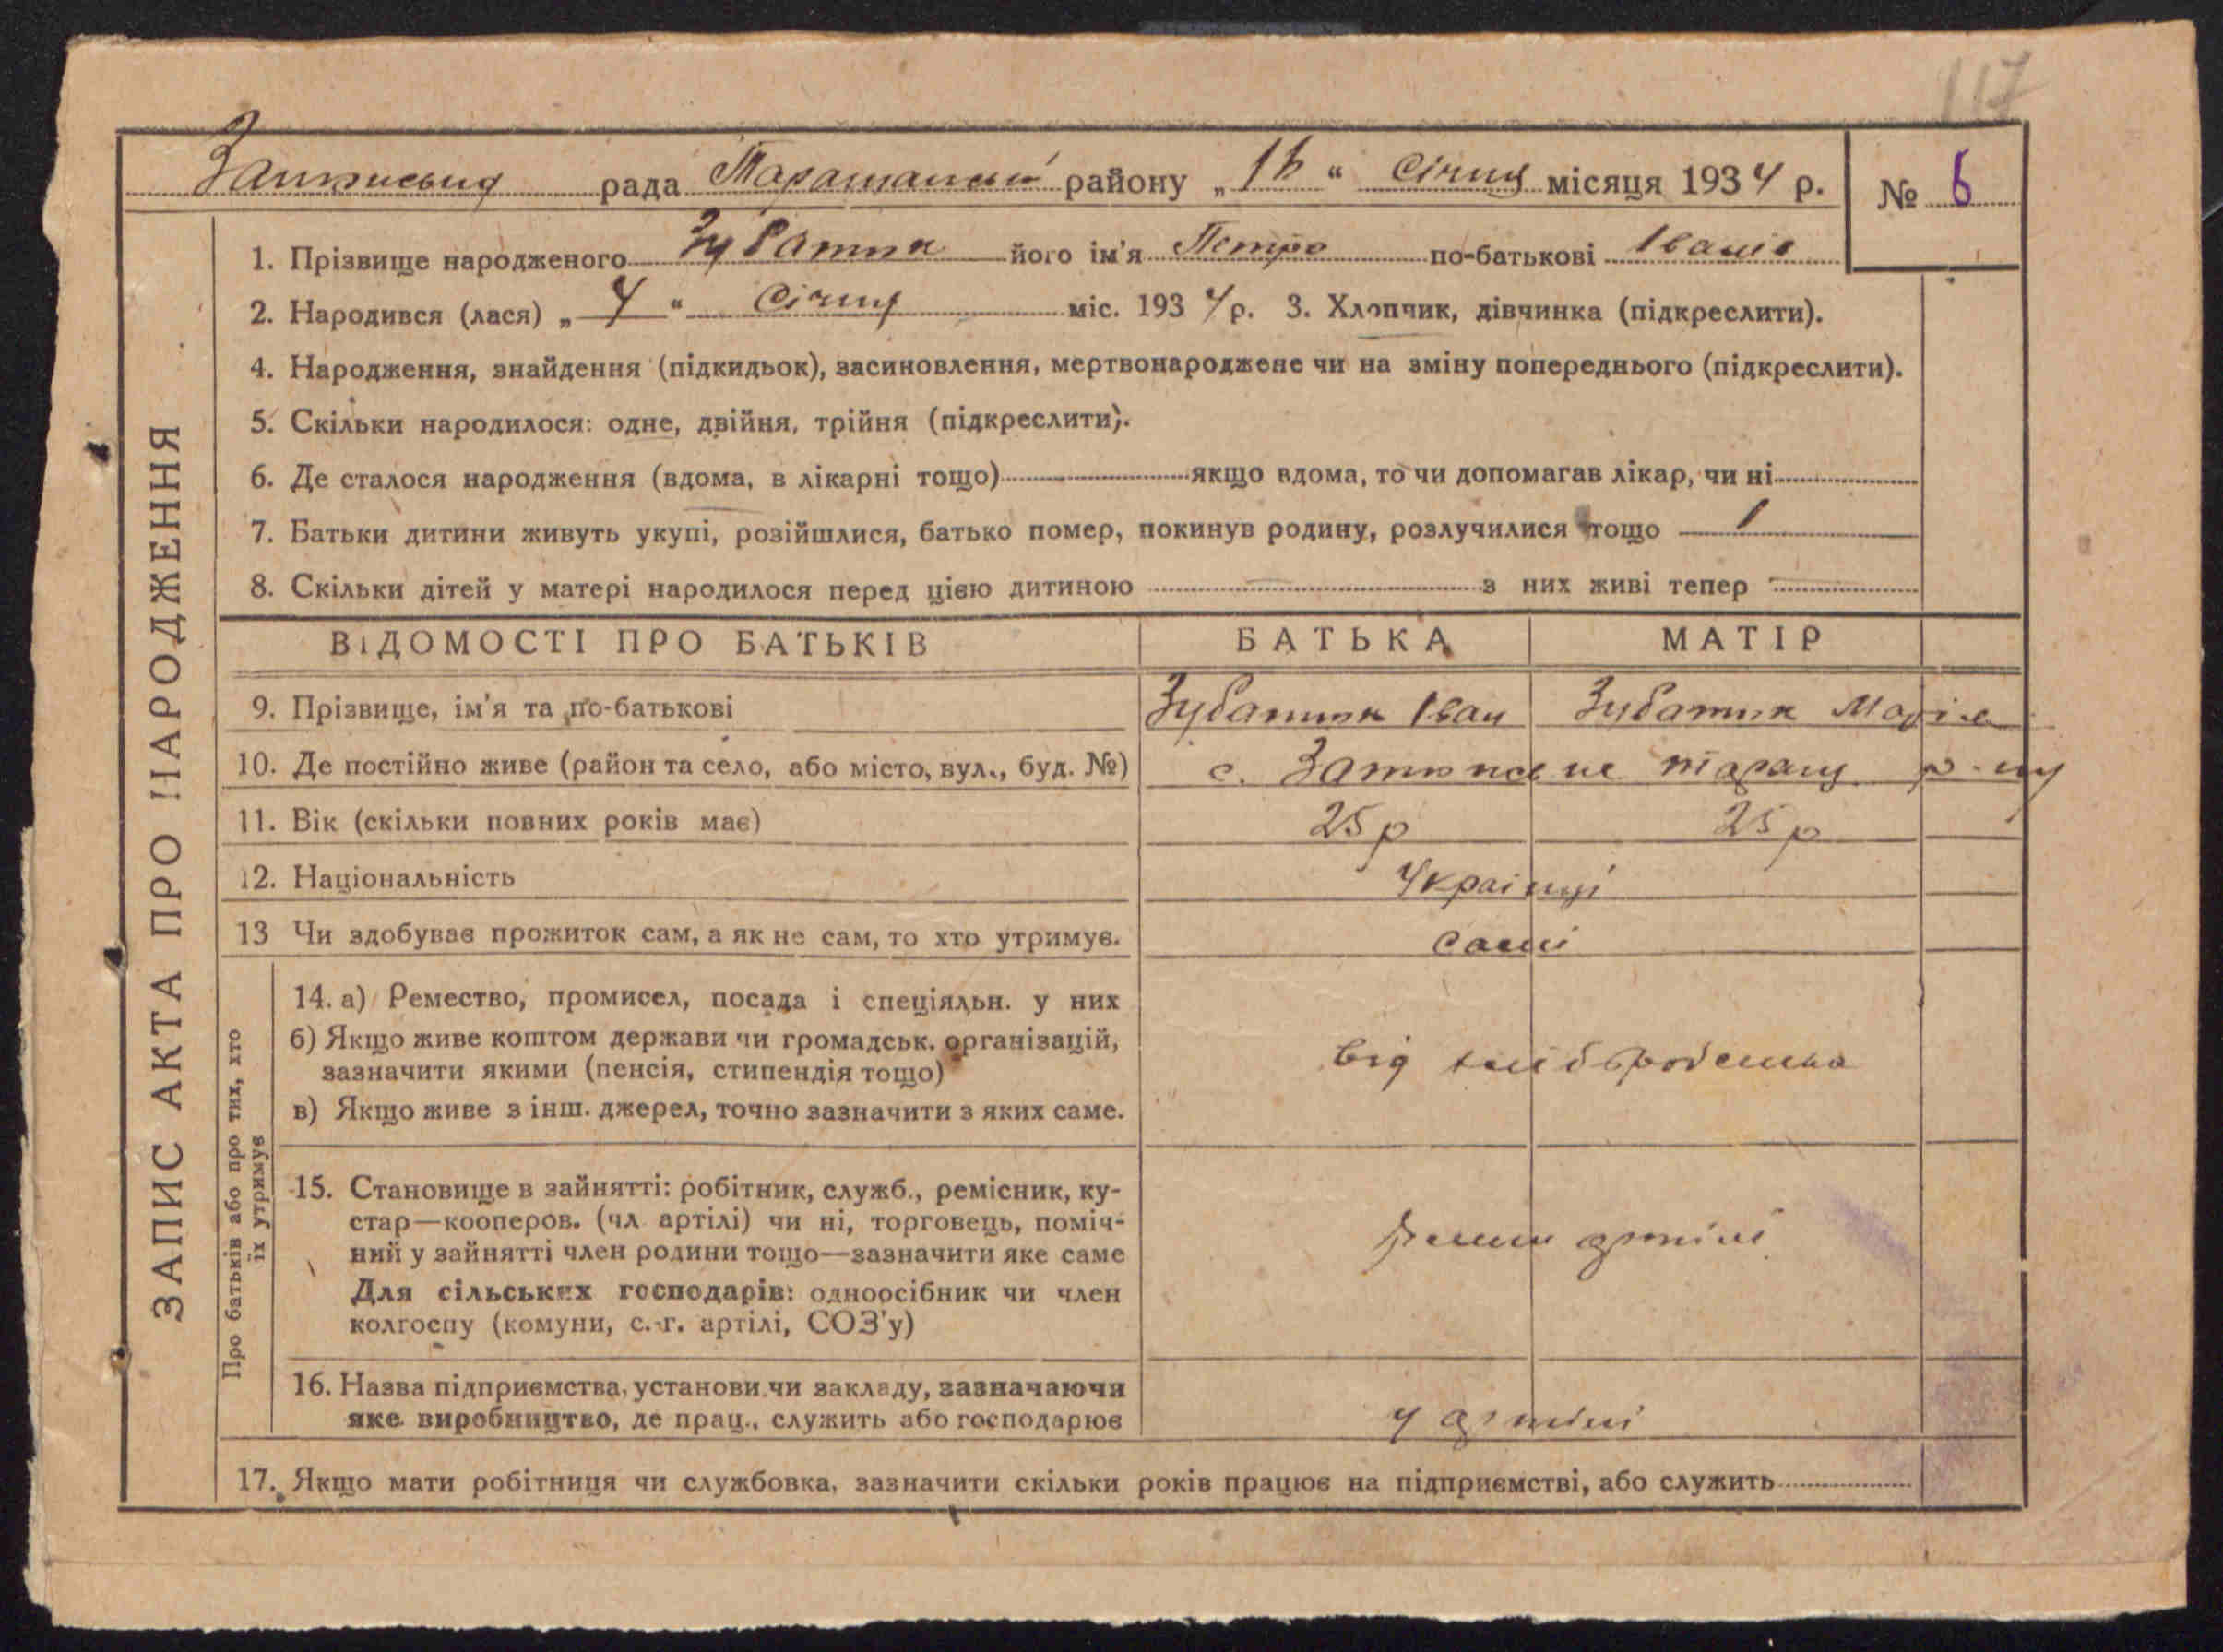 117
рада Таращанськ району „ 16 “ Січня місяця 1934 р. № 6
ЗАПИС АКТА ПРО НАРОДЖЕННЯ
1. Прізвище народженого його ім'я Петро по-батькові Іванів
2. Народився (лася) „ 4 “ Січня міс. 1934 р. 3. Хлопчик, дівчинка (підкреслити).
4. Народження, знайдення (підкидьок), засиновлення, мертвонароджене чи на зміну попереднього (підкреслити).
5. Скільки народилося: одне, двійня, трійня (підкреслити).
6. Де сталося народження (вдома, в лікарні тощо) якщо вдома, то чи допомагав лікар, чи ні
7. Батьки дитини живуть укупі, розійшлися, батько помер, покинув родину, розлучилися тощо
8. Скільки дітей у матері народилося перед цією дитиною — з них живі тепер —
ВІДОМОСТІ ПРО БАТЬКІВ БАТЬКА МАТІР
9. Прізвище, ім'я та по-батькові Зубатюк Іван Зубатюк Марія
10. Де постійно живе (район та село, або місто, вул., буд. №) с. Таращ р-ну
11. Вік (скільки повних років має) 25 р 25 р
12. Національність Українці
13 Чи здобуває прожиток сам, а як не сам, то хто утримує. самі
Про батьків або про тих, хто
їх утримує
14. а) Ремество, промисел, посада і спеціяльн. у них
б) Якщо живе коштом держави чи громадськ. організацій,
зазначити якими (пенсія, стипендія тощо) від
в) Якщо живе з інш. джерел, точно зазначити з яких саме.
15. Становище в зайнятті: робітник, служб., ремісник, ку-
стар—кооперов. (чл артілі) чи ні, торговець, поміч-
ний у зайнятті член родини тощо—зазначити яке саме артілі
Для сільських господарів: одноосібник чи член
колгоспу (комуни, с.-г. артілі, СОЗ'у)
16. Назва підприємства, установи чи закладу, зазначаючи
яке виробництво, де прац., служить або господарює у артілі
17. Якщо мати робітниця чи службовка, зазначити скільки років працює на підприємстві, або служить